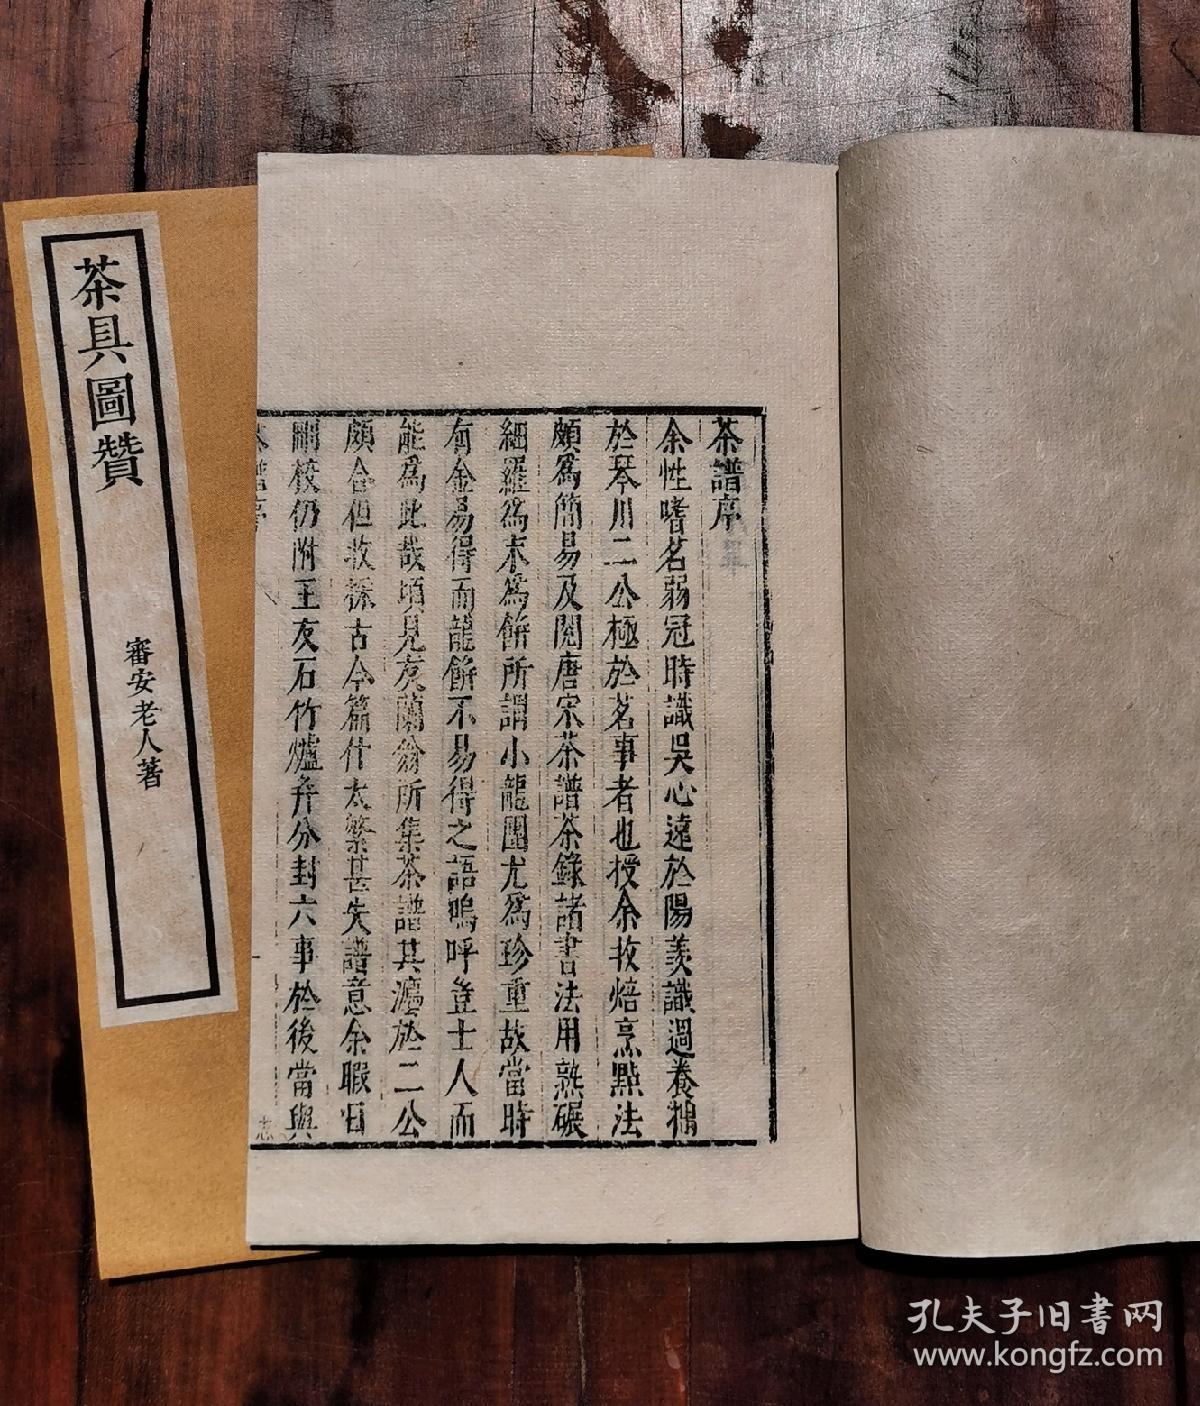 茶譜序
余性嗜茗弱冠時識吳心遠於陽羨識過養拙
於琴川二公極於茗事者也授余收焙烹點法
頗爲簡易及閱唐宋茶譜茶錄諸書法用熟碾
細羅爲末爲餅所謂小龍團尤爲珍重故當時
有金易得而龍餅不易得之語嗚呼豈士人而
能爲此哉頃見友蘭翁所集茶譜其法於二公
頗合但收採古今篇什太繁甚失譜意余暇日
刪校仍附王友石竹爐并分封六事於後當與
茶譜序
茶具圖贊
審安老人著
孔夫子旧書网
www.kongfz.com